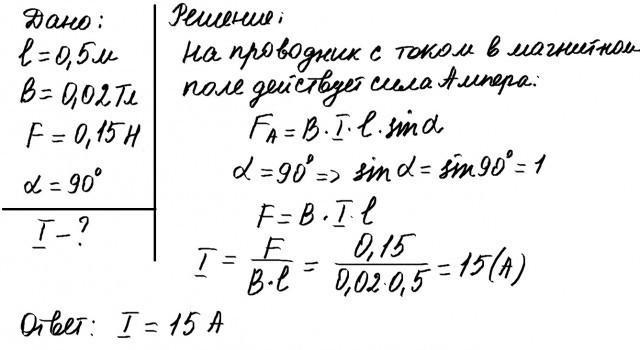 Дано:
l = 0,5 м
B = 0,02 Тл
F = 0,15 Н
α = 90°
I - ?
Решение:
На проводник с током в магнитном
поле действует сила Ампера:
F_A = B · I · l · sin α
α = 90° => sin α = sin 90° = 1
F = B · I · l
I = F / (B · l) = 0,15 / (0,02 · 0,5) = 15 (А)
Ответ: I = 15 А